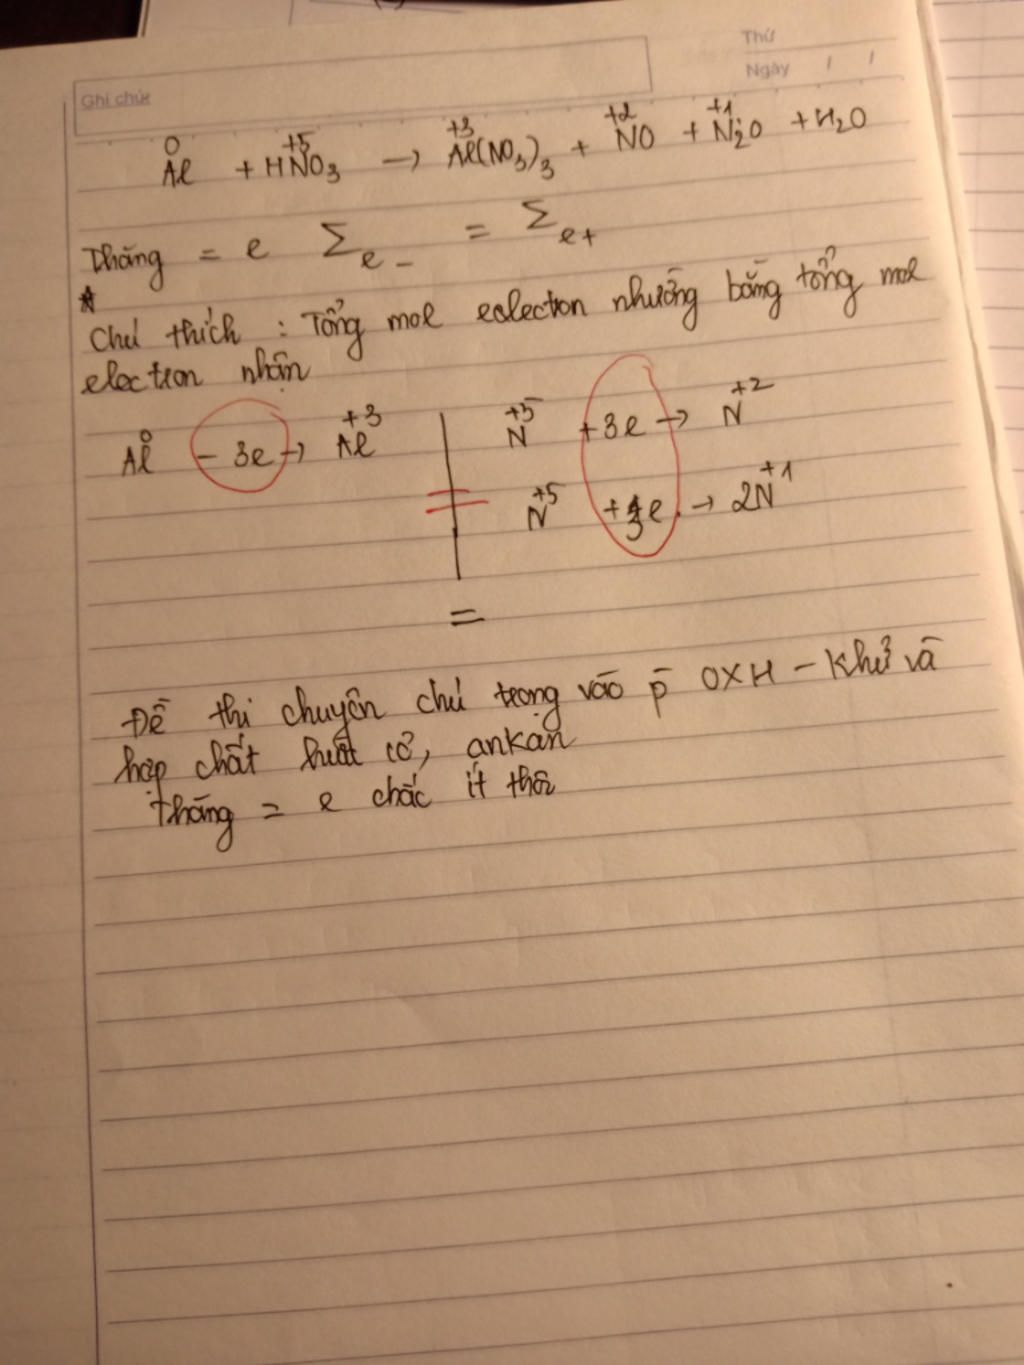 Thứ
Ngày / /
Ghi chú:
0 +5 +3 +2 +1
Al + HNO3 → Al(NO3)3 + NO + N2O + H2O
Thăng = e Σe- = Σe+
* Chú thích : Tổng mol eclection nhường bằng tổng mol
election nhận
0 +3 +5 +2
Al - 3e → Al | N + 3e → N
+5 +1
N + e → 2N
=
Đề thi chuyên chú trọng vào p̄ OXH - Khử và
hợp chất hưu cơ, ankan
thăng = e chắc ít thôi